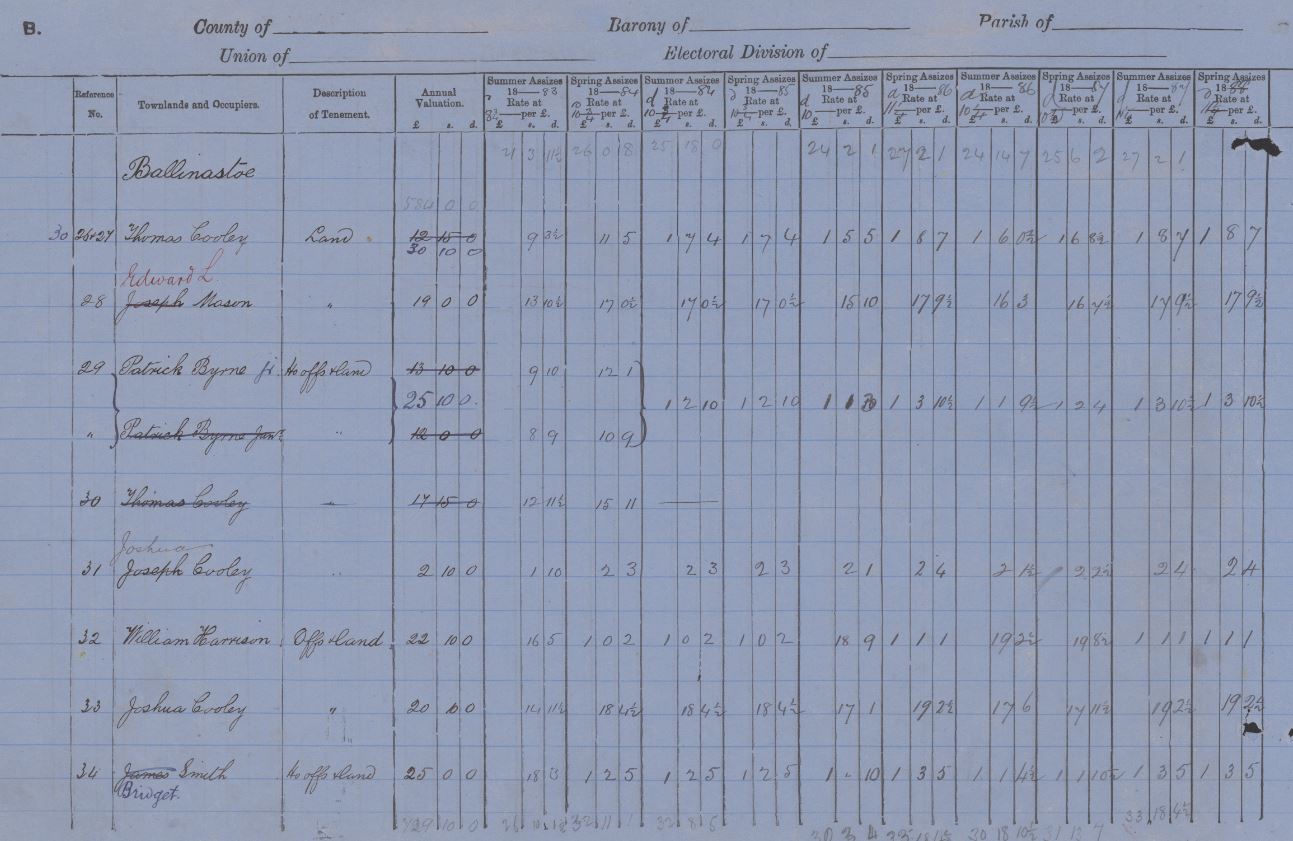 B. County of Barony of Parish of
Union of Electoral Division of
Reference No. Townlands and Occupiers. Description of Tenement. Annual Valuation. £ s. d. Summer Assizes 18—83 Rate at —per £. £ s. d. Spring Assizes 18—84 Rate at —per £. £ s. d. Summer Assizes 18—84 Rate at —per £. £ s. d. Spring Assizes 18—85 Rate at —per £. £ s. d. Summer Assizes 18—85 Rate at —per £. £ s. d. Spring Assizes 18—86 Rate at —per £. £ s. d. Summer Assizes 18—86 Rate at —per £. £ s. d. Spring Assizes 18—87 Rate at —per £. £ s. d. Summer Assizes 18—87 Rate at —per £. £ s. d. Spring Assizes 18—88 Rate at —per £. £ s. d.
21 3 11½ 26 0 8 25 18 0 24 2 1 27 2 1 24 14 7 25 6 2 27 2 1
Ballinastoe
584 0 0
30 26+27 Thomas Cooley Land 12 15 0 9 3½ 11 5 1 7 4 1 7 4 1 5 5 1 8 7 1 6 0½ 1 6 8½ 1 8 7 1 8 7
30 10 0
Edward L.
28 Joseph Mason " 19 0 0 13 10½ 17 0½ 17 0½ 17 0½ 15 10 17 9½ 16 3 16 7½ 17 9½ 17 9½
29 Patrick Byrne Ho offs + land 13 10 0 9 10 12 1
25 10 0 1 2 10 1 2 10 1 1 3 1 3 10½ 1 1 9½ 1 2 4 1 3 10½ 1 3 10½
" Patrick Byrne Junr " 12 0 0 8 9 10 9
30 Thomas Cooley " 17 15 0 12 11½ 15 11 —
Joshua
31 Joseph Cooley " 2 10 0 1 10 2 3 2 3 2 3 2 1 2 4 2 1½ 2 2½ 2 4 2 4
32 William Harrison Offs + land 22 10 0 16 5 1 0 2 1 0 2 1 0 2 18 9 1 1 1 19 2½ 19 8½ 1 1 1 1 1 1
33 Joshua Cooley " 20 10 0 14 11½ 18 4½ 18 4½ 18 4½ 17 1 19 2½ 17 6 17 11½ 19 2½ 19 2½
34 James Smith Ho offs + land 25 0 0 18 3 1 2 5 1 2 5 1 2 5 1 - 10 1 3 5 1 1 4½ 1 1 10½ 1 3 5 1 3 5
Bridget.
729 10 0 32 11 1 32 8 5 30 3 4 30 18 10½ 31 13 7 33 18 4½